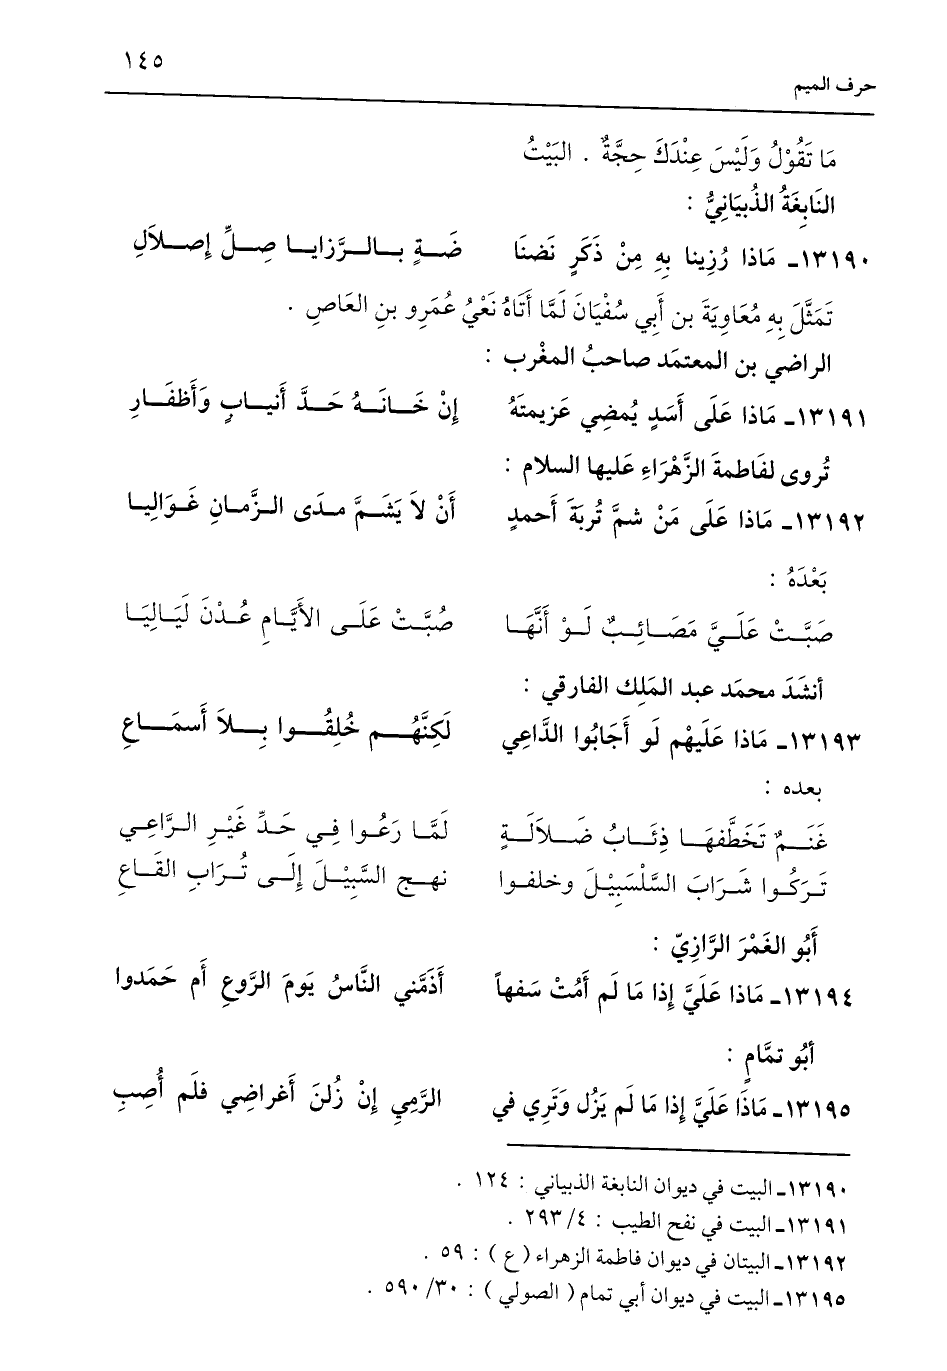 ١٤٥
حرف الميم
مَا تَقُوْلُ وَلَيْسَ عِنْدَكَ حِجَّةٌ . البَيْتُ
النَابِغَةُ الذُبيَانِيُّ :
١٣١٩٠ـ مَاذا رُزِينا بِهِ مِنْ ذَكَرٍ نَضنَا ضَـةٍ بـالـرَّزايـا صِـلِّ إِصـلاَلِ
تَمَثَّلَ بِهِ مُعَاوِيَةَ بن أَبي سُفْيَانَ لَمَّا أَتَاهُ نَعْيُ عُمَرو بنِ العَاصِ .
الراضي بن المعتمَد صاحبُ المغْرب :
١٣١٩١ـ مَاذا عَلَى أَسَدٍ يُمضِي عَزيمتَهُ إِنْ خَـانَـهُ حَـدَّ أَنيـابٍ وَأَظفَـارِ
تُروى لفَاطمةَ الزَّهْرَاءِ عَليها السلام :
١٣١٩٢ـ مَاذا عَلَى مَنْ شمَّ تُربَةَ أَحمدٍ أَنْ لاَ يَشَـمَّ مـدَى الـزَّمـانِ غَـوَاليـا
بَعْدَهُ :
صَبَّـتْ عَلَـيَّ مَصَـائِـبٌ لَـوْ أَنَّهَـا صُبَّـتْ عَلَـى الأَيَّـامِ عُـدْنَ لَيَـاليَـا
أنشَدَ محمَد عبد المَلِك الفارقي :
١٣١٩٣ـ مَاذا عَلَيْهْم لَو أَجَابُوا الدَّاعِي لَكِنَّهُـم خُلِقُـوا بِـلاَ أَسمَـاعِ
بعده :
غَنَـمٌ تَخَطَّفهَـا ذِئَـابُ ضَـلاَلَـةٍ لَمَّـا رَعُـوا فِـي حَـدِّ غَيْـرِ الـرَّاعِـي
تَـرَكُـوا شَـرَابَ السَّلْسَبِيْـلَ وخلفـوا نهـج السَّبِيْـلَ إِلَـى تُـرَابِ القَـاعِ
أَبُو الغَمْرَ الرَّازِيّ :
١٣١٩٤ـ مَاذا عَلَيَّ إِذا مَا لَم أَمُتْ سَفهاً أَذَمَّني النَّاسُ يَومَ الرَّوعِ أَم حَمَدوا
أبُو تمَّامٍ :
١٣١٩٥ـ مَاذَا عَلَيَّ إِذا مَا لَم يَزُل وَتَرِي في الرَّميِ إِنْ زُلنَ أَغراضِي فلَم أُصِبِ
١٣١٩٠ـ البيت في ديوان النابغة الذبياني : ١٢٤ .
١٣١٩١ـ البيت في نفح الطيب : ٤/ ٢٩٣ .
١٣١٩٢ـ البيتان في ديوان فاطمة الزهراء ( ع ) : ٥٩ .
١٣١٩٥ـ البيت في ديوان أبي تمام ( الصولي ) : ٣٠/ ٥٩٠ .